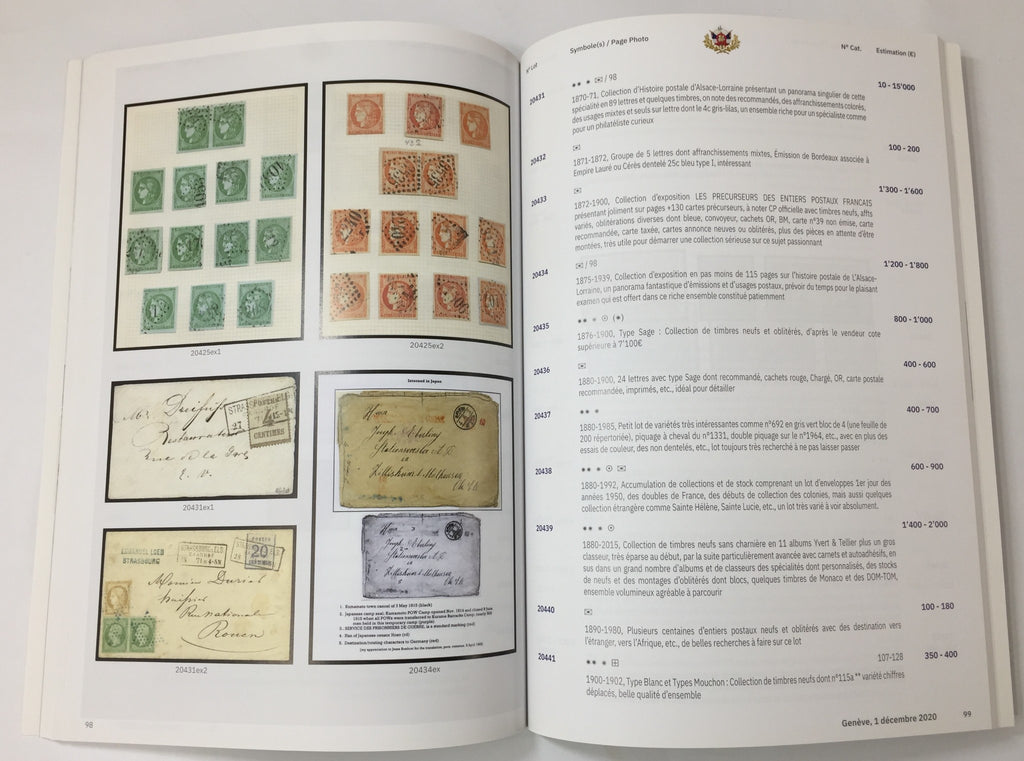 20425ex1
20425ex2
STRASSBURG ELS
20431ex1
EMMANUEL LOEB
STRASBOURG
20
CENTIMES
Rouen
20431ex2
Interned in Japan
1. Kumamoto town cancel of 3 May 1915 (black)
3. SERVICE DES PRISONNIERS DE GUERRE, is a standard marking (red)
5. Destination/routing characters to Germany (red)
20434ex
98
N° Lot
Symbole(s) / Page Photo
N° Cat.
Estimation (€)
20431
** * ✉ / 98
10 - 15'000
1870-71. Collection d'Histoire postale d'Alsace-Lorraine présentant un panorama singulier de cette
spécialité en 89 lettres et quelques timbres, on note des recommandés, des affranchissements colorés,
des usages mixtes et seuls sur lettre dont le 4c gris-lilas, un ensemble riche pour un spécialiste comme
pour un philatéliste curieux
20432
✉
100 - 200
1871-1872, Groupe de 5 lettres dont affranchissements mixtes, Émission de Bordeaux associée à
Empire Lauré ou Cérès dentelé 25c bleu type I, intéressant
20433
✉
1'300 - 1'600
1872-1900, Collection d'exposition LES PRECURSEURS DES ENTIERS POSTAUX FRANCAIS
présentant joliment sur pages +130 cartes précurseurs, à noter CP officielle avec timbres neufs, affts
variés, oblitérations diverses dont bleue, convoyeur, cachets OR, BM, carte n°39 non émise, carte
recommandée, carte taxée, cartes annonce neuves ou oblitérés, plus des pièces en attente d'être
montées, très utile pour démarrer une collection sérieuse sur ce sujet passionnant
20434
✉ / 98
1'200 - 1'800
1875-1939, Collection d'exposition en pas moins de 115 pages sur l'histoire postale de L'Alsace-
Lorraine, un panorama fantastique d'émissions et d'usages postaux, prévoir du temps pour le plaisant
examen qui est offert dans ce riche ensemble constitué patiemment
20435
** * ⊙ (*)
800 - 1'000
1876-1900, Type Sage : Collection de timbres neufs et oblitérés, d'après le vendeur cote
supérieure à 7'100€
20436
✉
400 - 600
1880-1900, 24 lettres avec type Sage dont recommandé, cachets rouge, Chargé, OR, carte postale
recommandée, imprimés, etc., idéal pour détailler
20437
** *
400 - 700
1880-1985, Petit lot de variétés très intéressantes comme n°692 en gris vert bloc de 4 (une feuille de
200 répertoriée), piquage à cheval du n°1331, double piquage sur le n°1964, etc., avec en plus des
essais de couleur, des non dentelés, etc., lot toujours très recherché à ne pas laisser passer
20438
** * ⊙ ✉
600 - 900
1880-1992, Accumulation de collections et de stock comprenant un lot d'enveloppes 1er jour des
années 1950, des doubles de France, des débuts de collection des colonies, mais aussi quelques
collection étrangère comme Sainte Hélène, Sainte Lucie, etc., un lot très varié à voir absolument.
20439
** * ⊙
1'400 - 2'000
1880-2015, Collection de timbres neufs sans charnière en 11 albums Yvert & Tellier plus un gros
classeur, très éparse au début, par la suite particulièrement avancée avec carnets et autoadhésifs, en
sus dans un grand nombre d'albums et de classeurs des spécialités dont personnalisés, des stocks
de neufs et des montages d'oblitérés dont blocs, quelques timbres de Monaco et des DOM-TOM,
ensemble volumineux agréable à parcourir
20440
✉
100 - 180
1890-1980, Plusieurs centaines d'entiers postaux neufs et oblitérés avec des destination vers
l'étranger, vers l'Afrique, etc., de belles recherches à faire sur ce lot
20441
** * ⊞
107-128
350 - 400
1900-1902, Type Blanc et Types Mouchon : Collection de timbres neufs dont n°115a ** variété chiffres
déplacés, belle qualité d'ensemble
Genève, 1 décembre 2020
99